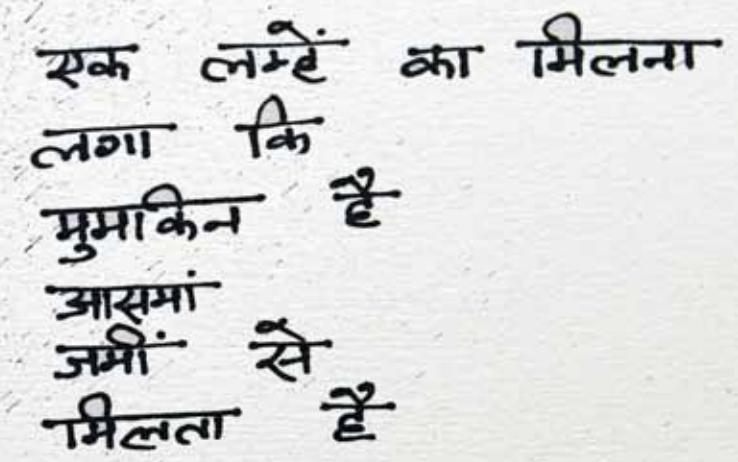 एक लम्हें का मिलना
लगा कि
मुमकिन है
आसमां
जमीं से
मिलता है